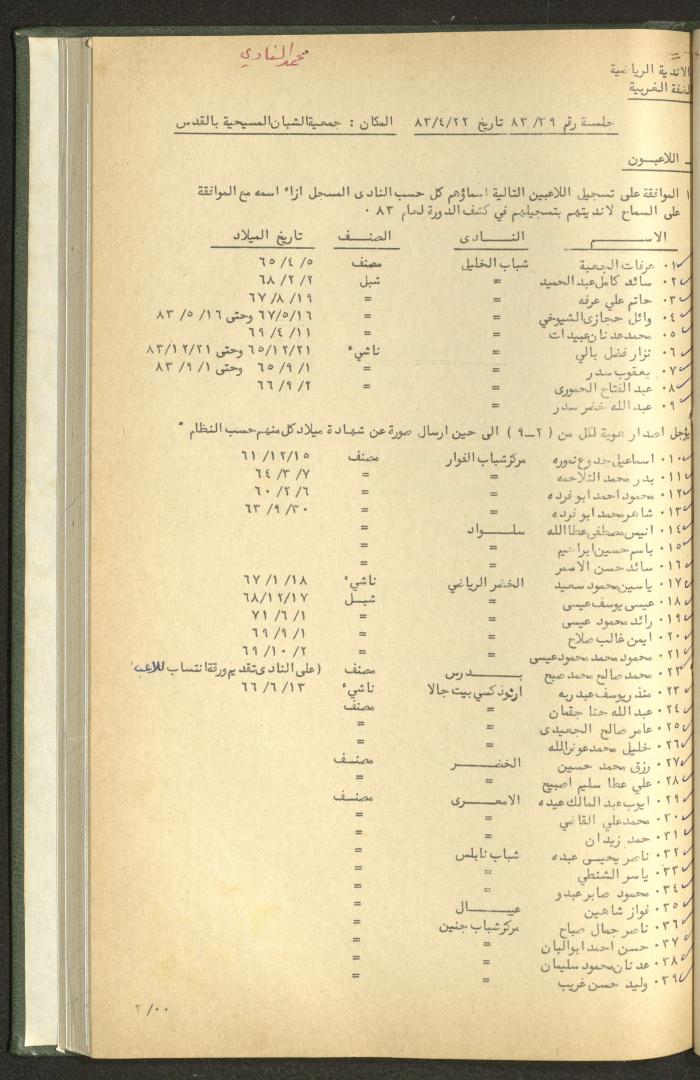 محمد النفادي
الاندية الرياضية
الضفة الغربية
جلسة رقم ٨٣/٣٩ تاريخ ٨٣/٤/٢٢ المكان : جمعية الشبان المسيحية بالقدس
ـ اللاعبــون
١ الموافقة على تسجيل اللاعبين التالية اسماؤهم كل حسب النادى المسجل ازاء اسمه مع الموافقة
على السماح لانديتهم بتسجيلهم في كشف الدورة لعام ٨٣ ٠
الاســـم النــادى الصنــف تاريخ الميلاد
٠١ عرفات الجعبة شباب الخليل مصنف ٥/ ٤/ ٦٥
٠٢ سائد كامل عبد الحميد = شبل ٢/ ٢/ ٦٨
٠٣ حاتم علي عرفه = = ١٩/ ٨/ ٦٧
٠٤ وائل حجازى الشيوخي = = ٦٧/٥/١٦ وحتى ١٦/ ٥/ ٨٣
٠٥ محمد عدنان عبيدات = = ١١/ ٤/ ٦٩
٠٦ نزار فضل بالي = ناشيء ٦٥/١٢/٢١ وحتى ٨٣/١٢/٢١
٠٧ يعقوب سدر = = ١/ ٩/ ٦٥ وحتى ١/ ٩/ ٨٣
٠٨ عبد الفتاح الحمورى = = ٢/ ٩/ ٦٦
٠٩ عبد الله خضر سدر =
يؤجل اصدار هوية لكل من ( ٢ـ٩ ) الى حين ارسال صورة عن شهادة ميلاد كل منهم حسب النظام "
٠١٠ اسماعيل جدوع نموره مركز شباب الفوار مصنف ٦١/١٢/١٥
٠١١ بدر محمد التلاحمه = = ٧/ ٣/ ٦٤
٠١٢ محمود احمد ابو فرده = = ٦/ ٢/ ٦٠
٠١٣ شاهر محمد ابو فرده = = ٣٠/ ٩/ ٦٣
٠١٤ انيس مصطفى عطا الله سلــواد =
٠١٥ باسم حسين ابراهيم = =
٠١٦ سائد حسن الاسمر = =
٠١٧ ياسين محمود سعيد الخضر الرياضي ناشيء ١٨/ ١/ ٦٧
٠١٨ عيسى يوسف عيسى = شبــل ٦٨/١٢/١٧
٠١٩ رائد محمود عيسى = = ١/ ٦/ ٧١
٠٢٠ ايمن غالب صلاح = = ١/ ٩/ ٦٩
٠٢١ محمود محمد محمود عيسى = = ٢/ ١٠/ ٦٩
٠٢٢ محمد صالح محمد صبح بــدرس مصنف (على النادى تقديم ورقة انتساب للاعب
٠٢٣ منذر يوسف عبد ربه ارثوذكسي بيت جالا ناشيء ١٣/ ٦/ ٦٦
٠٢٤ عبد الله حنا جقمان = مصنف
٠٢٥ عامر صالح الجعيدى = =
٠٢٦ خليل محمد عوض الله = =
٠٢٧ رزق محمد حسين الخضــر مصنــف
٠٢٨ علي عطا سليم اصبيح = =
٠٢٩ ايوب عبد المالك عيده الامعــرى مصنــف
٠٣٠ محمد علي القاضي = =
٠٣١ حمد زيدان = =
٠٣٢ ناصر يحيــى عبده شباب نابلس =
٠٣٣ ياسر الشنطي = =
٠٣٤ محمود صابر عبدو = =
٠٣٥ فواز شاهين عيبــال =
٠٣٦ ناصر جمال صباح مركز شباب جنين =
٠٣٧ حسن احمد ابوالبان = =
٠٣٨ عدنان محمود سليمان = =
٠٣٩ وليد حسن غريب = =
٢/٠٠